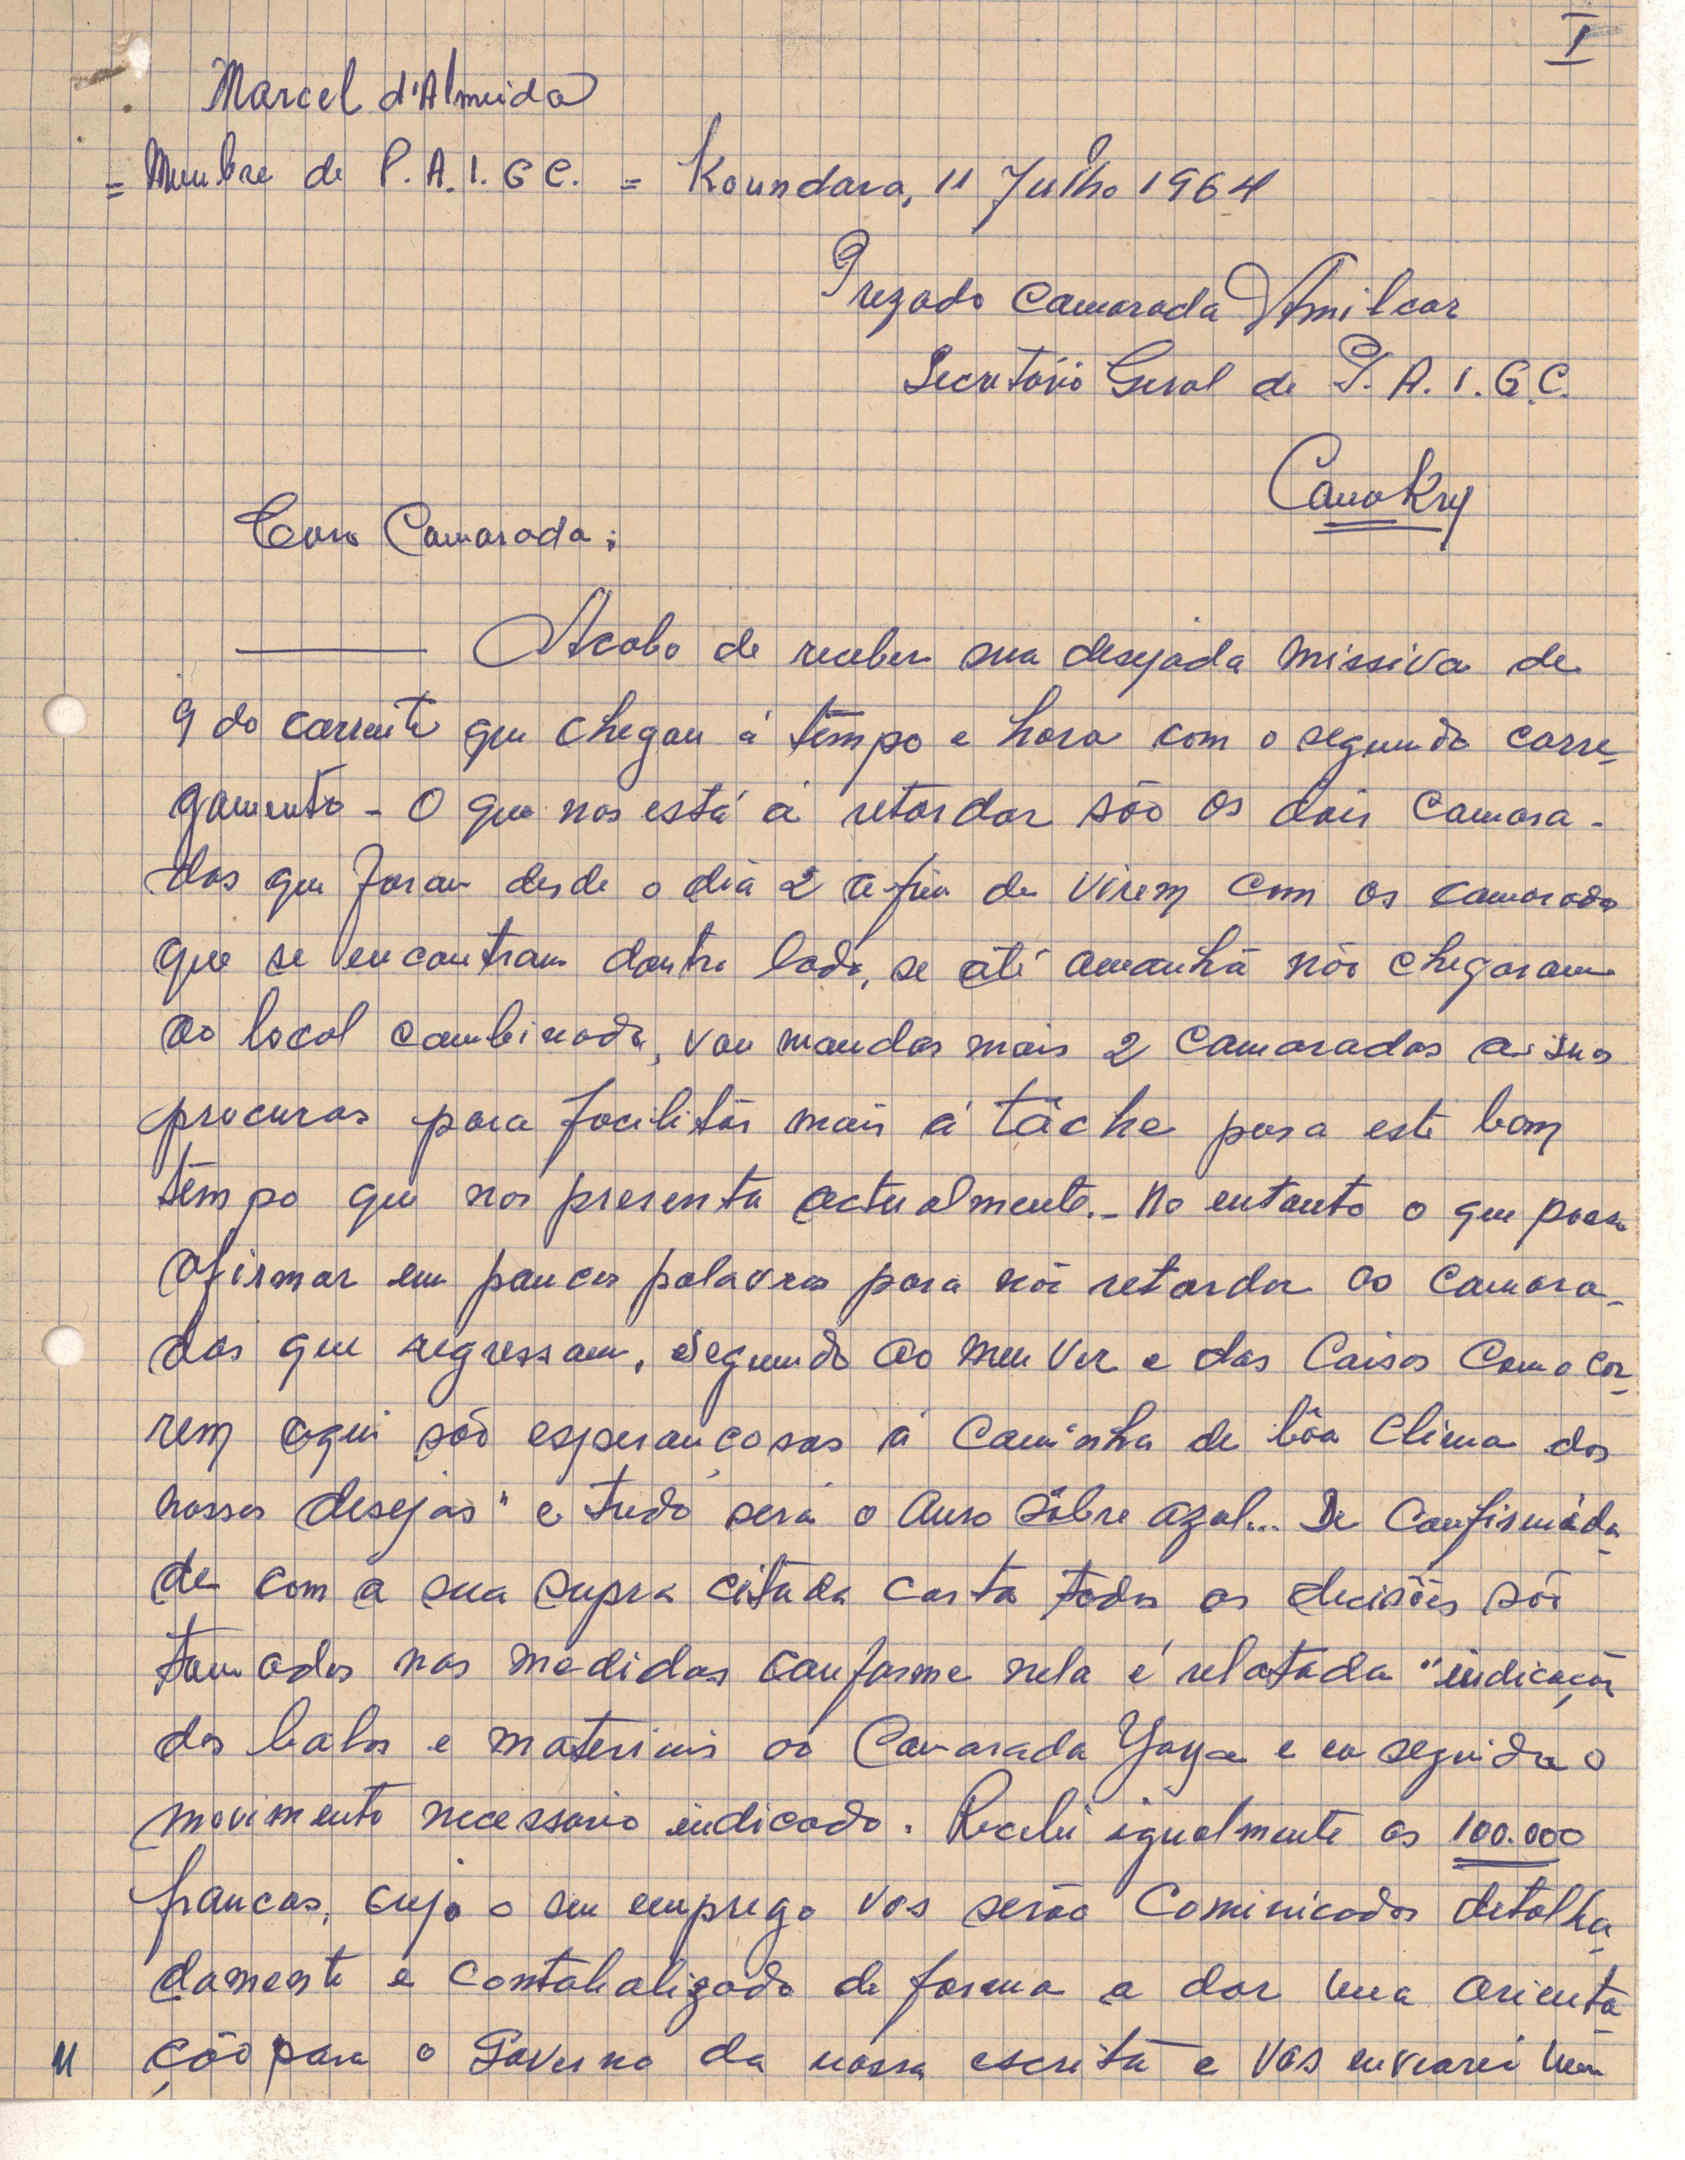 I
Marcel d'Almeida
= Membre de P.A.I.G C. = Koundara, 11 Julho 1964
Prezado Camarada Amilcar
Secretário Geral de P. A. I. G.C.
Conakry
Caro Camarada:
Acabo de receber sua desejada missiva de
9 do corrente que chegou á tempo e hora com o segundo carre-
gamento - O que nos está á retardar são os dois camara-
das que foram desde o dia 2 a fim de virem com os camaradas
que se encontram doutro lado, se até amanhã não chegaram
ao local combinado, vou mandar mais 2 camaradas a suas
procuras para facilitár mais á tâche para este bom
tempo que nos presenta actualmente. - No entanto o que posso
afirmar em poucas palavras para não retardar os camara-
das que regressam, segundo ao meu ver e das Coisas Como cor-
rem aqui são esperançosas á Caminha de bôa Clima dos
nossos desejos" e tudo será o Ouro Sôbre azul... De Confirmida-
de com a sua supra citada carta todas as decisões são
tomadas nas medidas conforme nela é relatada "indicação
das balas e materiais ao Camarada Yaya e em seguida o
movimento necessario indicado. Recebi igualmente os 100.000
francos, cujo o seu emprego vos serão Cominicados detalha-
damente e Contabalizado de forma a dar uma Orienta-
11 ção para o Governo da nossa escrita e vos enviarei um